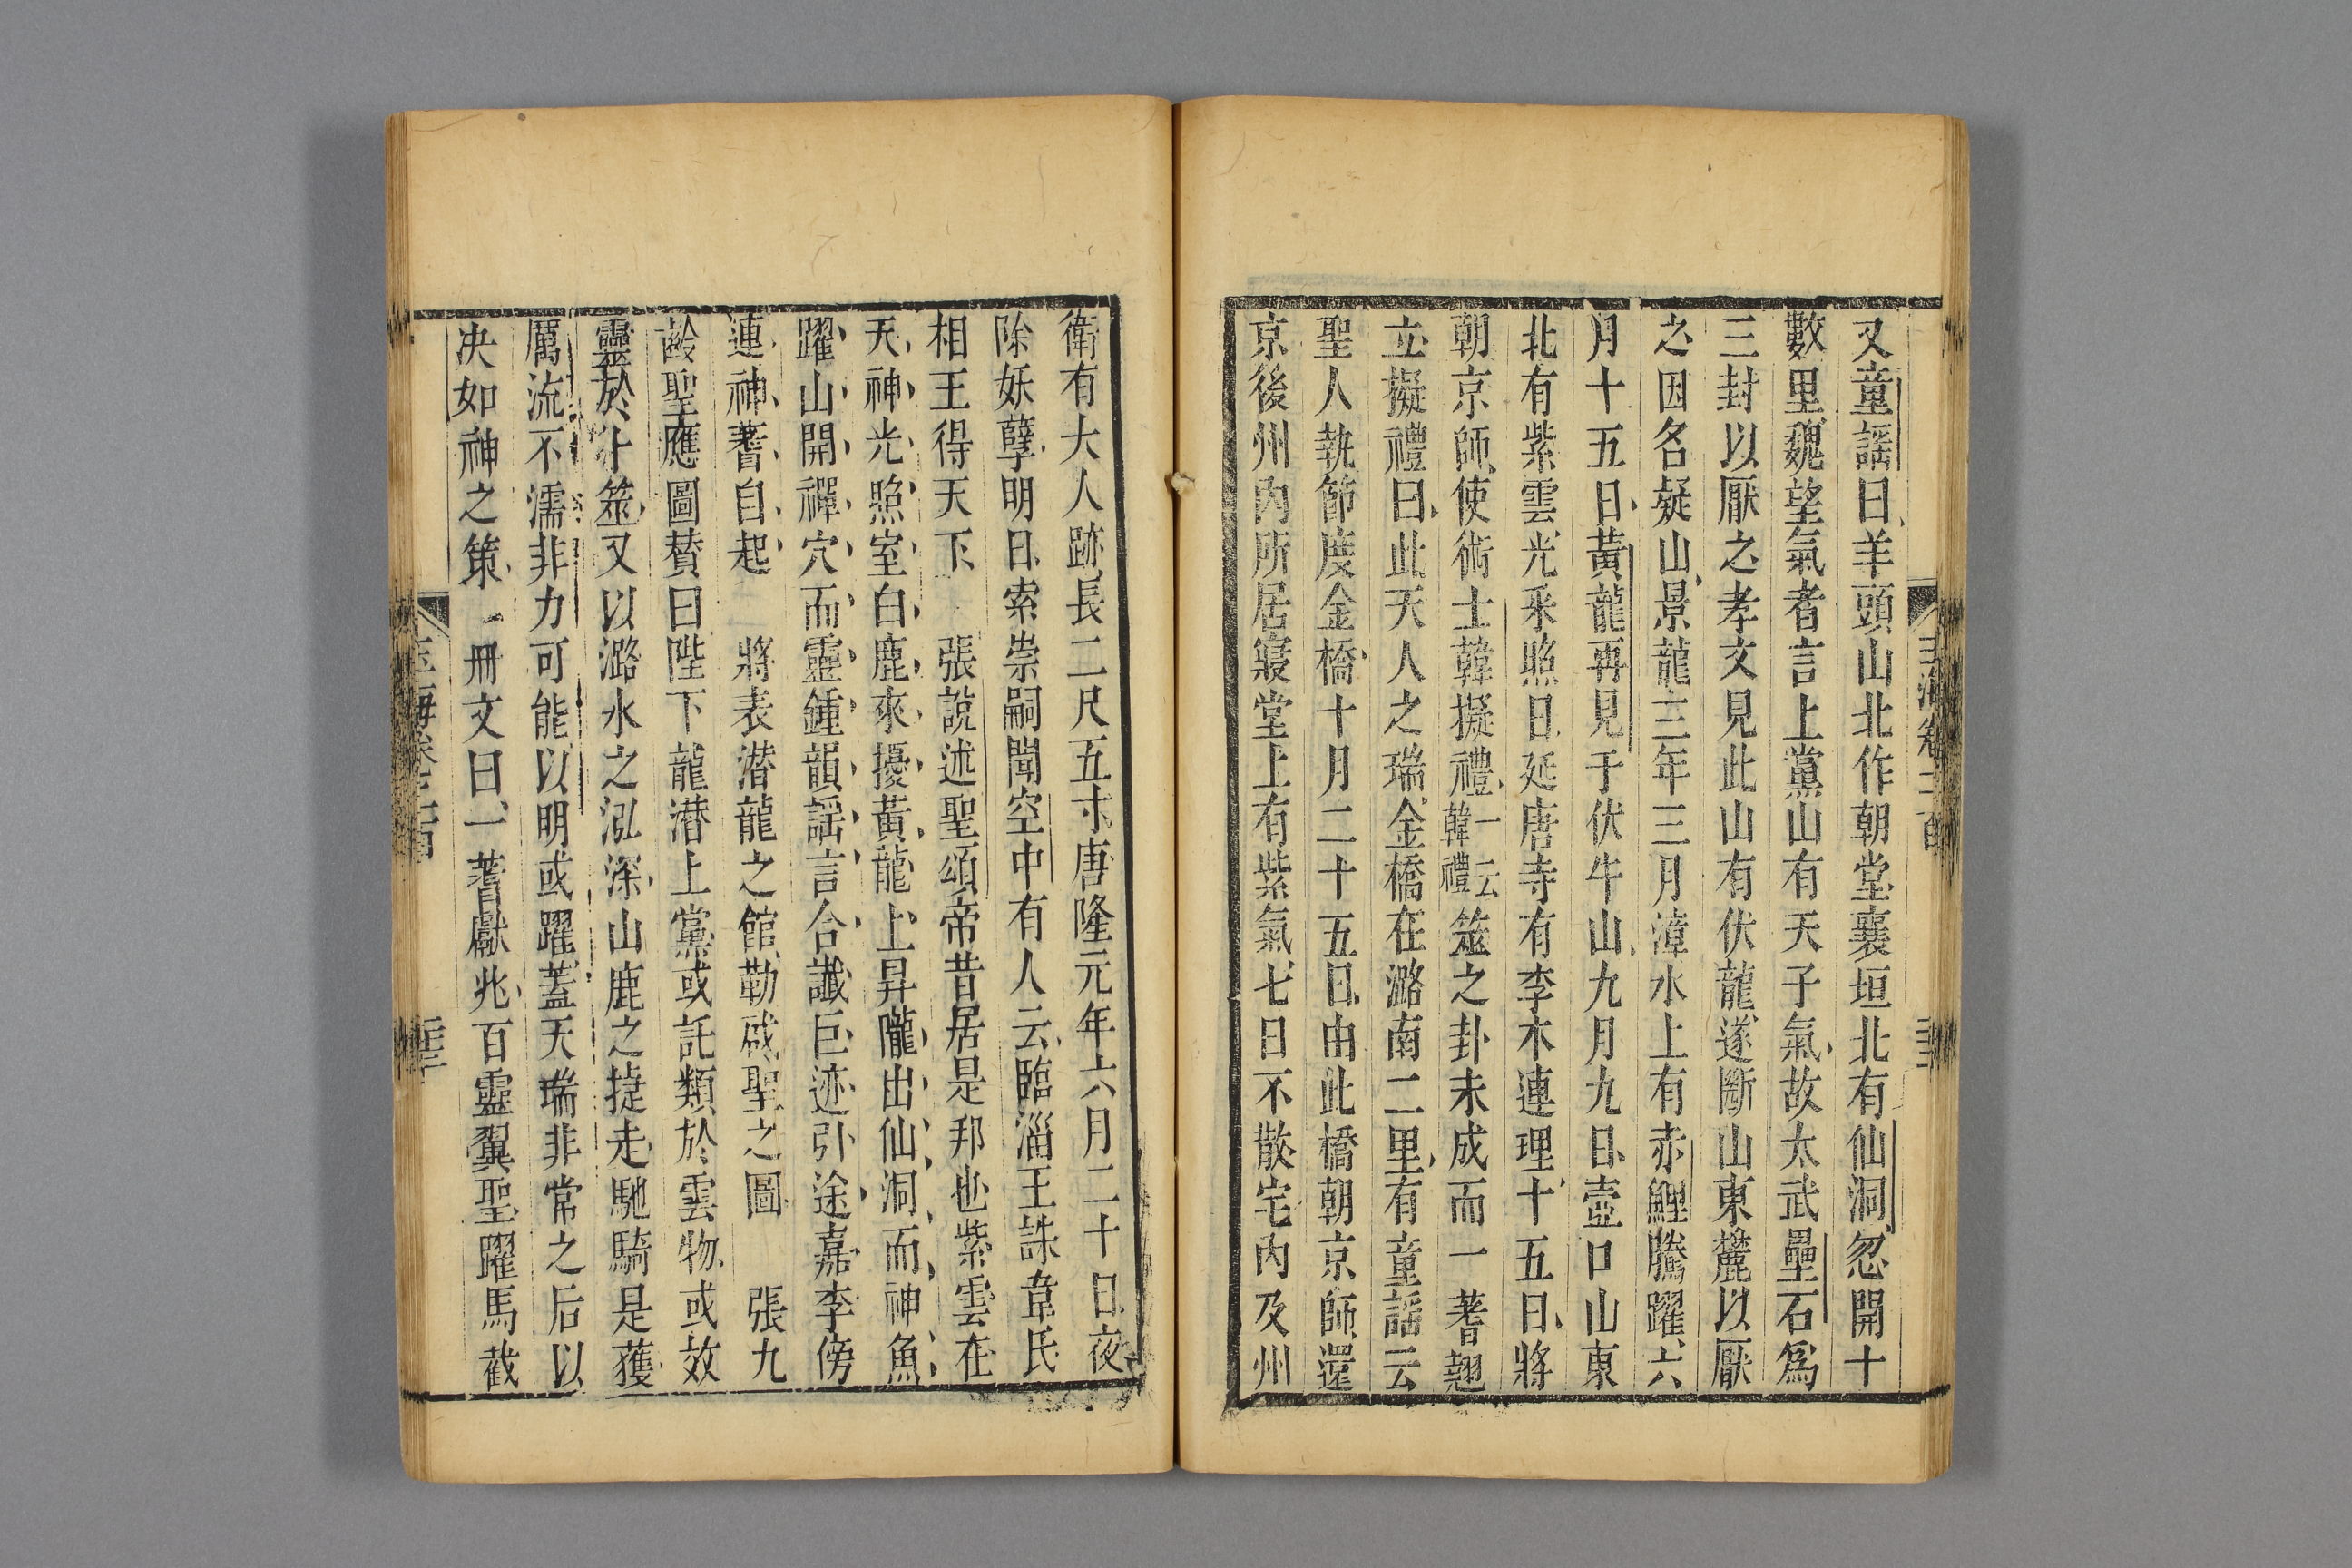 又童謡曰羊頭山北作朝堂襄垣北有仙洞忽開十
數里魏望氣者言上黨山有天子氣故太武壘石爲
三封以厭之孝文見此山有伏龍遂斷山東麓以厭
之因名疑山景龍三年三月漳水上有赤鯉騰躍六
月十五日黃龍再見于伏牛山九月九日壺口山東
北有紫雲光采照日延唐寺有李木連理十五日將
朝京師使術士韓擬禮一云韓禮筮之卦未成而一蓍翹
立擬禮曰此天人之瑞金橋在潞南二里有童謡云
聖人執節度金橋十月二十五日由此橋朝京師還
京後州內所居寢堂上有紫氣七日不散宅內及州
衛有大人跡長二尺五寸唐隆元年六月二十日夜
除妖孽明日索崇嗣聞空中有人云臨淄王誅韋氏
相王得天下 張說述聖頌帝昔居是邦也紫雲在
天神光照室白鹿來擾黃龍上昇隴出仙洞而神魚
躍山開禪穴而靈鍾韻謡言合讖巨迹引途嘉李傍
連神蓍自起 將表潜龍之館勒啟聖之圖 張九
齡聖應圖賛曰陛下龍潜上黨或託類於雲物或效
靈於卜筮又以潞水之泓深山鹿之㨗走馳騎是獲
厲流不濡非力可能以明或躍蓋天瑞非常之后以
决如神之策 冊文曰一蓍獻兆百靈翼聖躍馬截
玉海卷二百